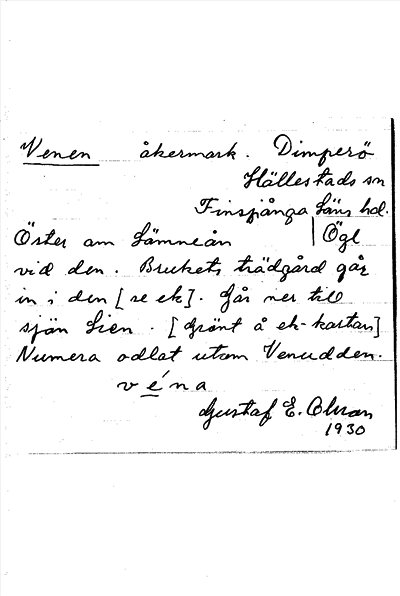 Venen åkermark. Dimperö
Hällestads sn
Finspånga läns hd.
Öster om Lämneån Ögl
vid den. Brukets trädgård går
in i den [se ek]. Går ner till
sjön Lien. [Grönt å ek-kartan]
Numera odlat utom Venudden.
véna
Gustaf E. Olson
1930